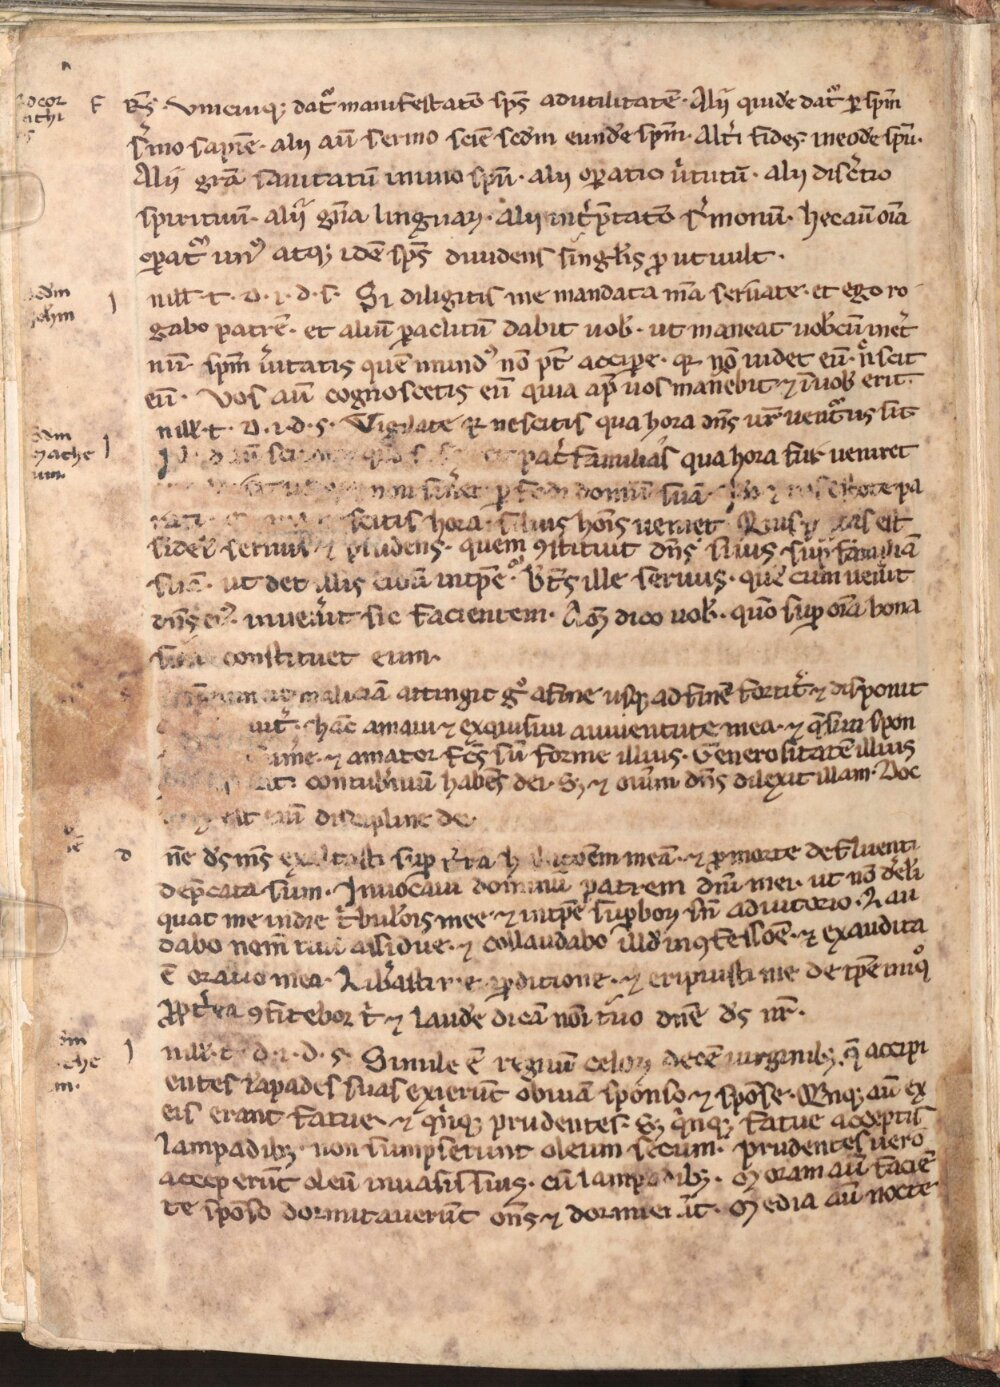 ad cor
inthi
os
F Rs̄. Vnicuiq; dat᷑ manifestatō sp̄s ad utilitatē. Alij quidē dat᷑ ꝑ sp̄m
s̓mo sapiēe. alij aū sermo sciēe scd̄m eundē sp̄m. Alt̓i fides in eodē spū.
Alij gr̄a sanitatū in uno spū. alij oꝑatio ūtutū. alij discr̄tio
spirituū. alij gr̄a linguaꝝ. alij int̓p̄tatō s̓monū. hec aū om̄ia
oꝑat᷑ unꝰ atq; idē sp̄s diuidens singl̓is ꝓut uult.
scdm
iohm
J n illo t. d. i. d. s. Si diligitis me mandata m̄a seruate. et ego ro
gabo patrē. et aliū ꝑaclitū dabit uob̓. ut maneat uob̓cū in et̓
nū. sp̄m ūitatis quē mundꝰ nō pt̄ accipe. qr nō uidet eū. n̊ scit
eū. Vos aū cognoscetis eū quia ap̄ uos manebit ⁊ ī uob̓ erit.
scdm
mathe
um
J n ill̓ t. d. i. d. s. Vigilate qr nescitis qua hora dn̄s ur̄ uent᷑us sit
pat̓familias qua hora fur ueniret
non sin̓et ꝑfodi domū suā. estote pa
rati scitis hora filius hōis ueniet Quis putas est
fidel̓ seruus ⁊ prudens. quem ꝯstituit dn̄s suus sup̄ familiā
suā. ut det illis cibū in tp̄e. Bt̄s ille seruus. quē cum uen̓it
dn̄s eiꝰ. inuen̓it sic facientem. Am̄ dico uob̓. quō sup̄ om̄ia bona
sua constituet eum.
S maliciā attingit gͦ a fine usq; ad finē fortit̓ ⁊ disponit
uit̓. hāc amaui ⁊ exquisiui a iuuentute mea. ⁊ q̄siui spon
sume. ⁊ amator fc̄s sū forme illius. Generositatē illius
contub̓niū habēs dei. S; ⁊ oīum dn̄s dilexit illam. Doc
est aū discipline dei
D n̄e ds̄ ms̄ exaltasti sup̄ t̓ra h̄ meā. ⁊ ꝓ morte defluenti
dep̄cata sum. Inuocaui dominū patrem dn̄i mei. ut nō deli
quat me in die t̓bul̓ois mee ⁊ in tp̄e sup̄boꝝ sn̄ adiutorio. Lau
dabo nom̄ tuū assidue. ⁊ collaudabo ill̓d in ꝯfessiōe. ⁊ exaudita
ē oratio mea. Lib̓asti me ꝑditione. ⁊ eripuisti me de tp̄e iniqͦ
ꝓpt̓ea ꝯfitebor t̓ ⁊ laudē dicā nōi tuo dn̄e ds̄ nr̄.
scdm
mathe
um.
J n ill̓ t. d. i. d. s. Simile ē regnū celoꝝ decē uirginib; q̄ accipi
entes lāpades suas exierūt obuiā sponso ⁊ sponse. Qinq; aū ex
eis erant fatue ⁊ q̓nq; prudentes. S; q̓nq; fatue acceptis
lampadib; non sumpserunt oleum secum. prudentes uero
acceperūt oleū in uasis suis. cū lampadib;. Moram aū faciē
te spōso dormitauerūt om̄s ⁊ dormier̄ūt. Media aū nocte